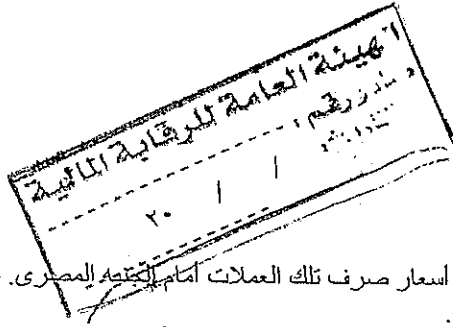 الهيئة العامة للرقابة المالية
رقم :
/ / ٢٠
اسعار صرف تلك العملات أمام الجنيه المصرى.